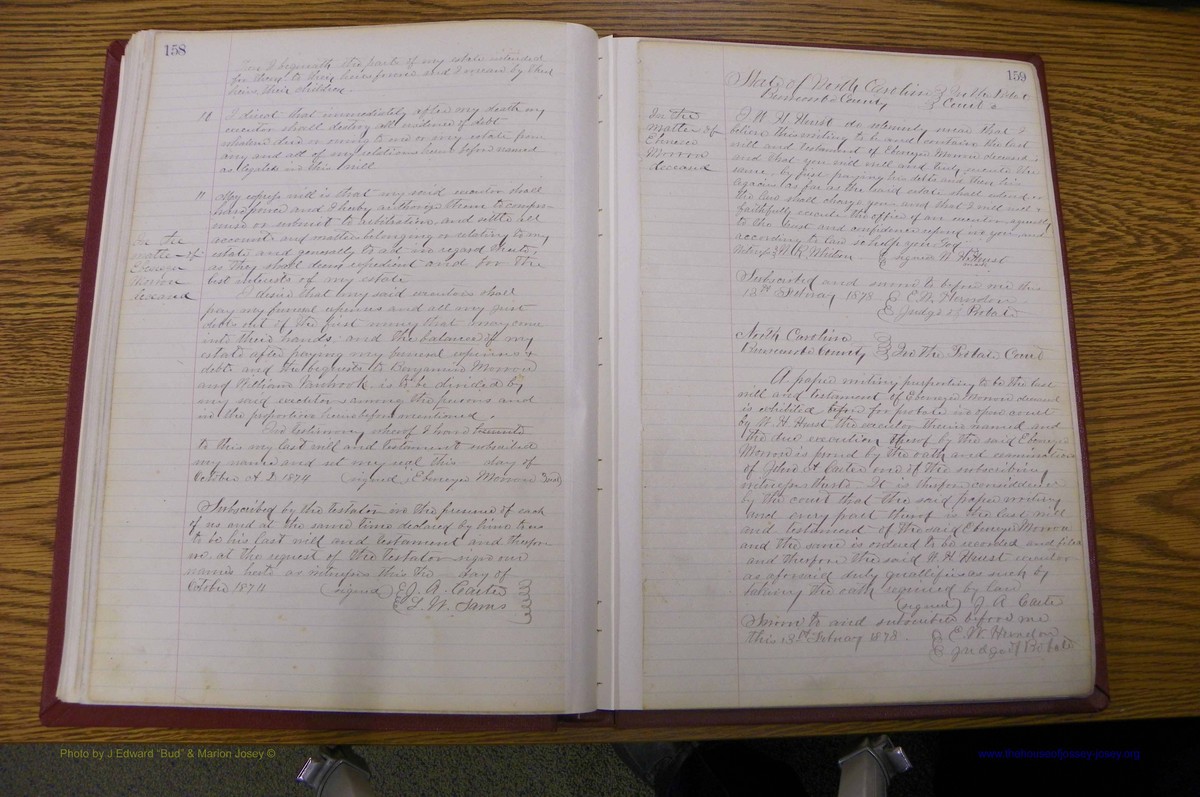 158
I bequeath the parts of my estate intended
for them to their heirs and I mean by their
heirs their children.
10 I direct that immediately after my death my
executor shall destroy all evidence of debt
whatever due or owing to me or my estate from
any and all of my relations herein before named
as legatees in this will
11 My express will is that my said executor shall
have power and I hereby authorize them to compro-
mise or submit to arbitration and settle all
accounts and matters belonging or relating to my
estate and generally to act in regard thereto
as they shall deem expedient and for the
best interests of my estate
In the
matter of
Ebenezer
Morrow
deceased
I desire that my said executors shall
pay my funeral expenses and all my just
debts out of the first money that may come
into their hands, and the balance of my
estate after paying my funeral expenses &
debts and the bequests to Benjamin Morrow
and William Vanhook is to be divided by
my said executors among the persons and
in the proportion herein before mentioned.
In testimony whereof I have hereunto
to this my last will and testament subscribed
my name and set my seal this day of
October A D 1874 (signed) Ebenezer Morrow Seal
Subscribed by the testator in the presence of each
of us and at the same time declared by him to us
to be his last will and testament and thereupon
we at the request of the testator sign our
names hereto as witnesses this the day of
October 1874 (signed) J. A. Carter
L. W. Sams
159
State of North Carolina In the Probate
Buncombe County Court
In the
matter of
Ebenezer
Morrow
deceased
I W H Hurst do solemnly swear that I
believe this writing to be and contain the last
will and testament of Ebenezer Morrow deceased
and that you will well and truly execute the
same by first paying his debts and then his
legacies as far as the said estate shall extend or
the law shall charge you and that I will well &
faithfully execute the office of an executor agreeably
to the trust and confidence reposed in you and
according to law so help you God
Witness W R (signed) W. H. Hurst
Subscribed and sworn to before me this
12th February 1878 E. W. Herndon
Judge of Probate
North Carolina
Buncombe County In the Probate Court
A paper writing purporting to be the last
will and testament of Ebenezer Morrow deceased
is exhibited before for probate in open court
by W. H. Hurst the executor therein named and
the due execution thereof by the said Ebenezer
Morrow is proved by the oath and examination
of John A Carter one of the subscribing
witnesses thereto. It is therefore considered
by the court that the said paper writing
and every part thereof is the last will
and testament of the said Ebenezer Morrow
and the same is ordered to be recorded and filed
and thereupon the said W. H. Hurst executor
as aforesaid duly qualifies as such by
taking the oath required by law
(signed) J. A. Carter
Sworn to and subscribed before me
this 13th February 1878. E. W. Herndon
Judge of Probate
Photo by J Edward "Bud" & Marion Josey ©
www.thehouseofjossey-josey.org